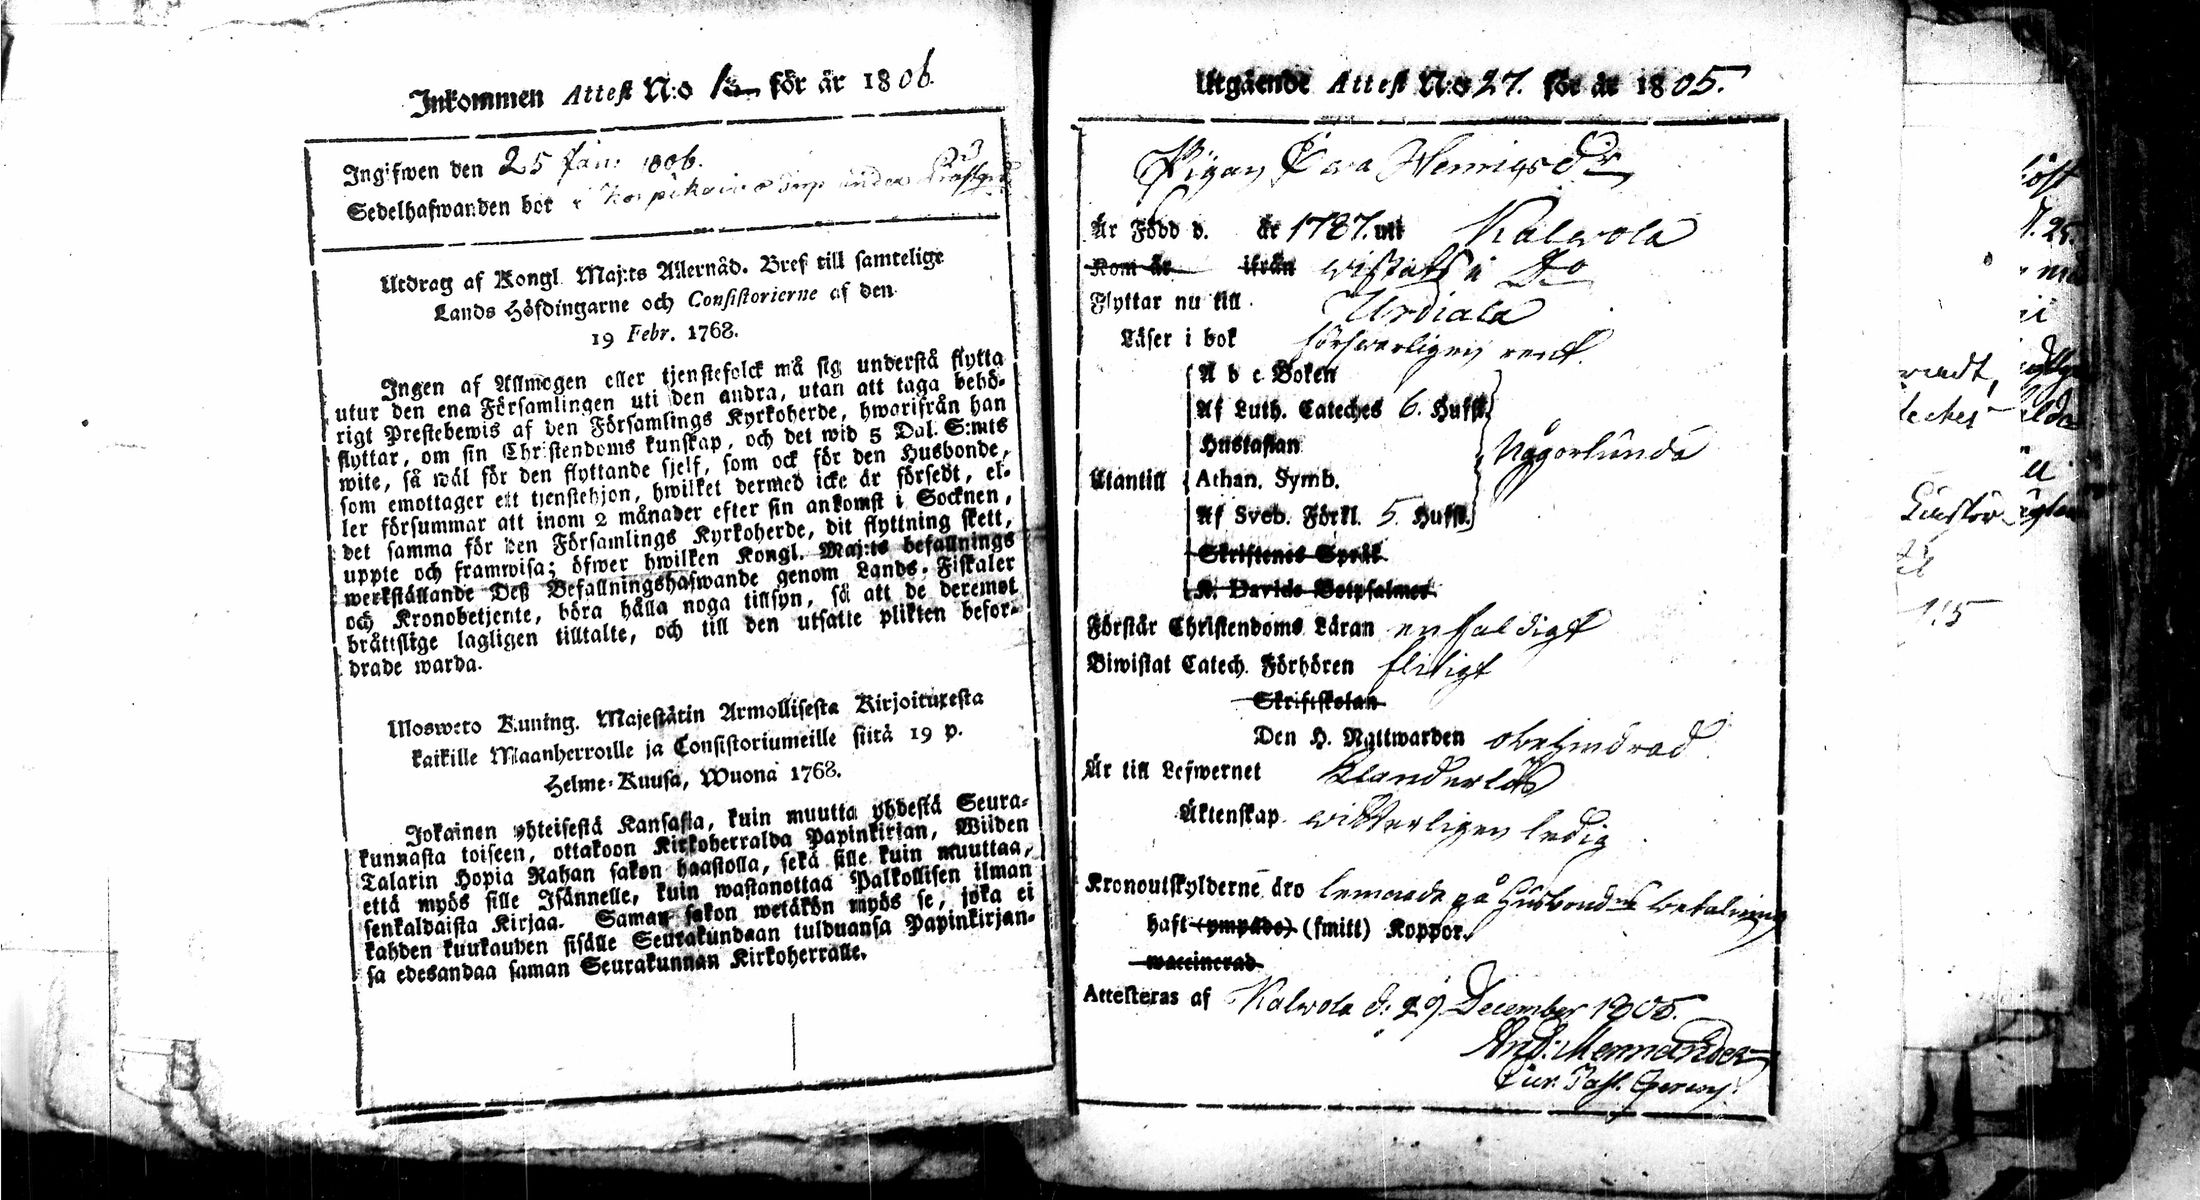 Inkommen Attest N:o 13 för år 1806.
Ingifwen den 25 Jan: 1806.
Sedelhafwanden bor i
Utdrag af Kongl. Maj:ts Allernåd. Bref till samtelige
Lands Höfdingarne och Consistorierne af den
19 Febr. 1768.
Ingen af Allmogen eller tjenstefolck må sig understå flytta
utur den ena Församlingen uti den andra, utan att taga behö-
rigt Prestebewis af den Församlings Kyrkoherde, hwarifrån han
flyttar, om sin Christendoms kunskap, och det wid 5 Dal. S:mts
wite, så wäl för den flyttande sjelf, som ock för den Husbonde,
som emottager ett tjenstehjon, hwilket dermed icke är försedt, el-
ler försummar att inom 2 månader efter sin ankomst i Socknen,
det samma för den Församlings Kyrkoherde, dit flyttning skett,
uppte och framwisa; öfwer hwilken Kongl. Maj:ts befallnings
werkställande Deß Befallningshafwande genom Lands-Fiskaler
och Kronobetjente, böra hålla noga tillsyn, så att de deremot
bråttslige lagligen tilltalte, och till den utsatte plikten befor-
drade warda.
Ulosweto Kuning. Majestätin Armollisesta Kirjoituxesta
kaikille Maanherroille ja Consistoriumeille siitä 19 p.
Helme-Kuusa, Wuona 1768.
Jokainen yhteisestä Kansasta, kuin muutta yhdestä Seura-
kunnasta toiseen, ottakoon Kirkoherralda Papinkirjan, Wiiden
Talarin Hopia Rahan sakon haastolla, sekä sille kuin muuttaa,
että myös sille Isännelle, kuin wastanottaa Palkollisen ilman
senkaldaista Kirjaa. Saman sakon wetäkön myös se, joka ei
kahden kuukauden sisälle Seurakundaan tulduansa Papinkirjan-
sa edesandaa saman Seurakunnan Kirkoherralle.
Utgående Attest N:o 27. för år 1805.
Pigan Ewa Henricsdr
Är Född d. år 1787. uti Kalwola
Kom år ifrån wistats i Do
Flyttar nu till Urdiala
Läser i bok förswarligen rent.
A b c Boken
Af Luth. Cateches 6. Hufst.
Hustaflan
Utantill Athan. Symb. Någorlunda
Af Sveb. Förkl. 5. Hufst.
Skriftenes Språk
K. Davids Botpsalmer
Förstår Christendoms Läran enfaldigt
Biwistat Catech. Förhören flitigt
Skriftskolan
Den H. Nattwarden obehindrad
Är till Lefwernet Klanderlös
Äktenskap witterligen ledig
Kronoutskylderne äro lemnade på Husbondens betalning
haft (ympade) (smitt) Koppor.
waccinerad
Attesteras af Kalwola d. 29 December 1805.
And: Mennander